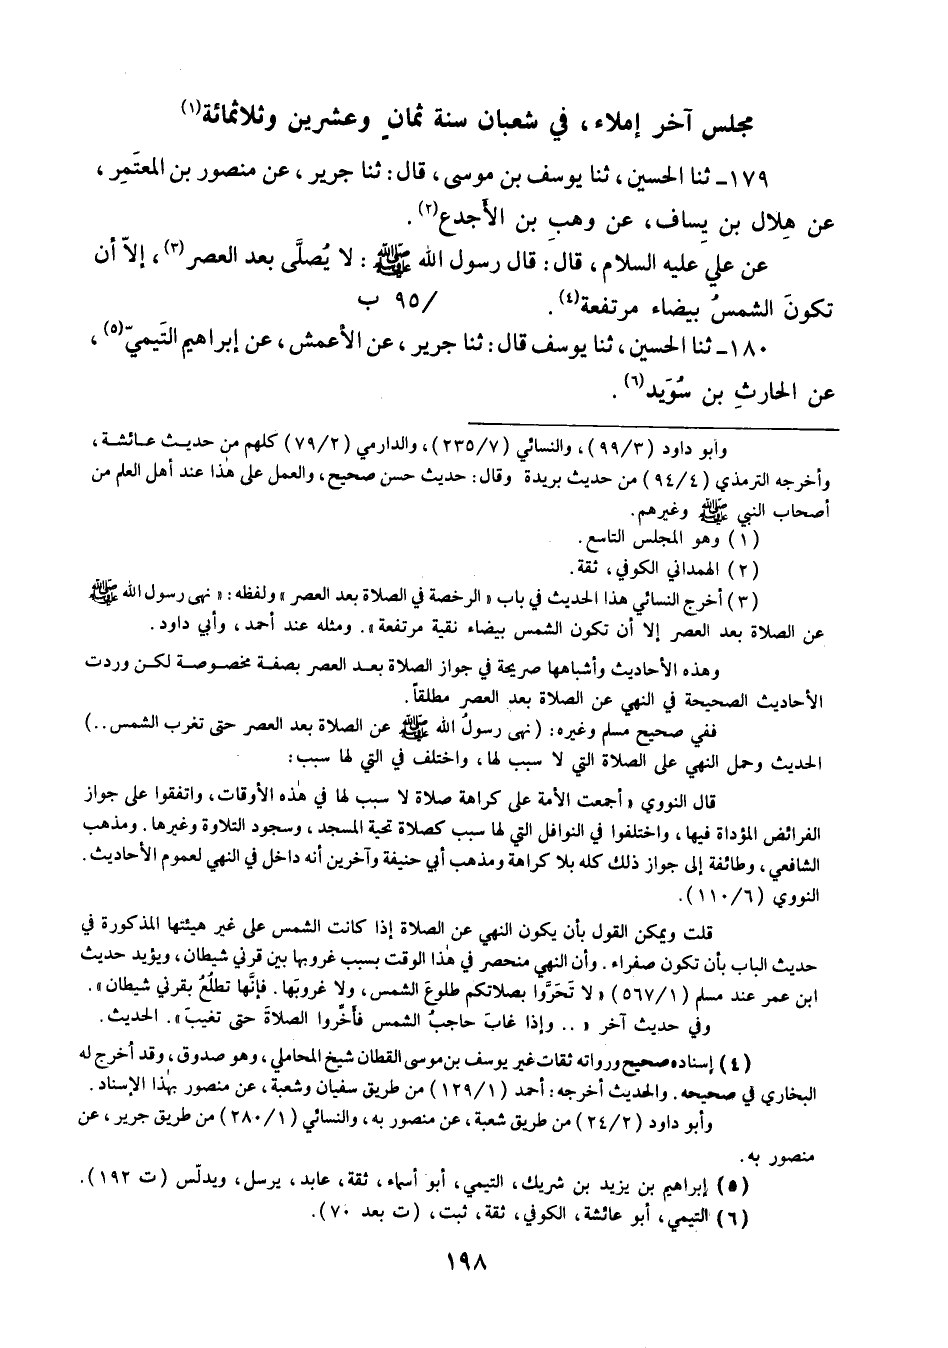 مجلس آخر إملاء، في شعبان سنة ثمانٍ وعشرين وثلاثمائة(١)
١٧٩ـ ثنا الحسين، ثنا يوسف بن موسى، قال: ثنا جرير، عن منصور بن المعتَمِر،
عن هِلال بن يِساف، عن وهبِ بن الأَجدع(٢).
عن علي عليه السلام، قال: قال رسول الله ﷺ: لا يُصلَّى بعد العصر(٣)، إلاّ أن
تكونَ الشمسُ بيضاء مرتفعة(٤). /٩٥ ب
١٨٠ـ ثنا الحسين، ثنا يوسف قال: ثنا جرير، عن الأعمش، عن إبراهيم التَيميّ(٥)،
عن الحارثِ بن سُوَيد(٦).
وأبو داود (٩٩/٣)، والنسائي (٢٣٥/٧)، والدارمي (٧٩/٢) كلهم من حديث عائشة،
وأخرجه الترمذي (٩٤/٤) من حديث بريدة وقال: حديث حسن صحيح، والعمل على هٰذا عند أهل العلم من
أصحاب النبي ﷺ وغيرهم.
(١) وهو المجلس التاسع.
(٢) الهمداني الكوفي، ثقة.
(٣) أخرج النسائي هذا الحديث في باب «الرخصة في الصلاة بعد العصر» ولفظه: «نهى رسول الله ﷺ
عن الصلاة بعد العصر إلا أن تكون الشمس بيضاء نقية مرتفعة». ومثله عند أحمد، وأبي داود.
وهذه الأحاديث وأشباهها صريحة في جواز الصلاة بعد العصر بصفة مخصوصة لكن وردت
الأحاديث الصحيحة في النهي عن الصلاة بعد العصر مطلقاً.
ففي صحيح مسلم وغيره: (نهى رسولُ الله ﷺ عن الصلاة بعد العصر حتى تغرب الشمس..)
الحديث وحمل النهي على الصلاة التي لا سبب لها، واختلف في التي لها سبب:
قال النووي «أجمعت الأمة على كراهة صلاة لا سبب لها في هٰذه الأوقات، واتفقوا على جواز
الفرائض المؤداة فيها، واختلفوا في النوافل التي لها سبب كصلاة تحية المسجد، وسجود التلاوة وغيرها. ومذهب
الشافعي، وطائفة إلى جواز ذلك كله بلا كراهة ومذهب أبي حنيفة وآخرين أنه داخل في النهي لعموم الأحاديث.
النووي (١١٠/٦).
قلت ويمكن القول بأن يكون النهي عن الصلاة إذا كانت الشمس على غير هيئتها المذكورة في
حديث الباب بأن تكون صفراء. وأن النهي منحصر في هٰذا الوقت بسبب غروبها بين قرني شيطان، ويؤيد حديث
ابن عمر عند مسلم (٥٦٧/١) «لا تَحَرَّوا بصلاتكم طلوعَ الشمس، ولا غروبَها. فإنَّها تطلُعُ بقرني شيطان».
وفي حديث آخر «.. وإذا غابَ حاجبُ الشمس فأَخِّروا الصلاةَ حتى تغيبَ». الحديث.
(٤) إسناده صحيح ورواته ثقات غير يوسف بن موسى القطان شيخ المحاملي، وهو صدوق، وقد أخرج له
البخاري في صحيحه. والحديث أخرجه: أحمد (١٢٩/١) من طريق سفيان وشعبة، عن منصور بهٰذا الإسناد.
وأبو داود (٢٤/٢) من طريق شعبة، عن منصور به، والنسائي (٢٨٠/١) من طريق جرير، عن
منصور به.
(٥) إبراهيم بن يزيد بن شريك، التيمي، أبو أسماء، ثقة، عابد، يرسل، ويدلّس (ت ١٩٢).
(٦) التيمي، أبو عائشة، الكوفي، ثقة، ثبت، (ت بعد ٧٠).
١٩٨